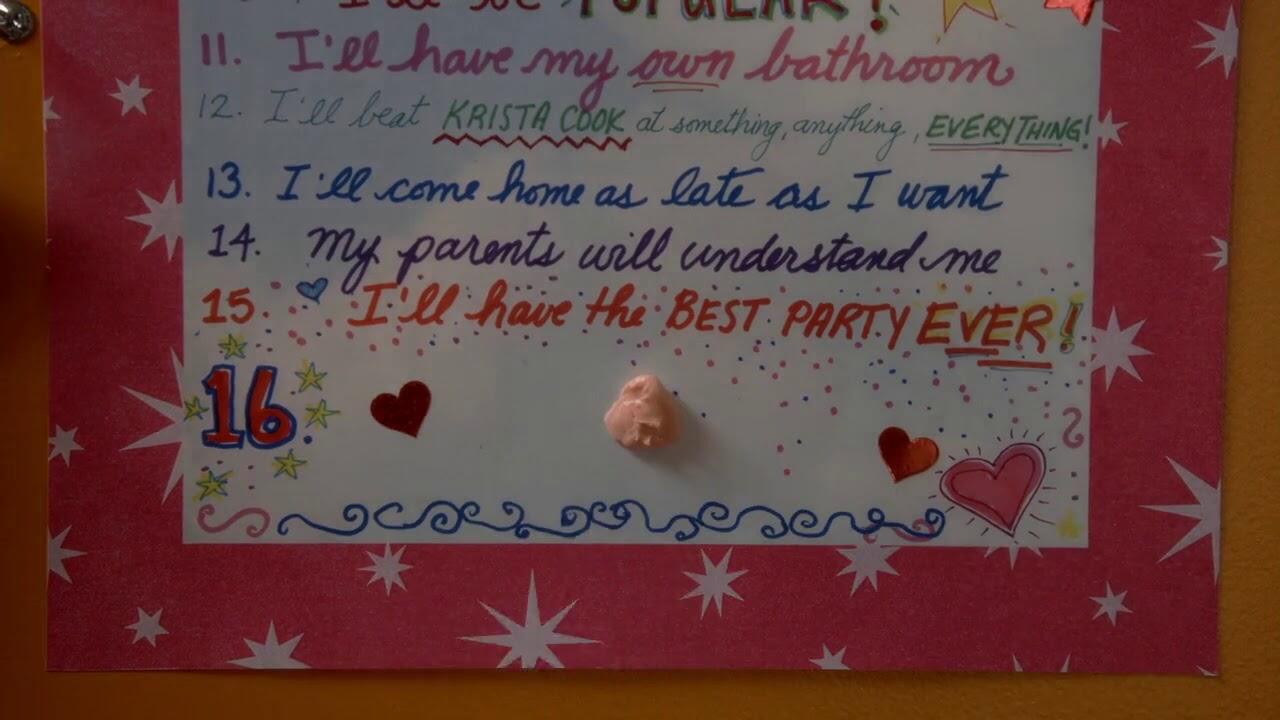 I'll be POPULAR!
11. I'll have my own bathroom
12. I'll beat KRISTA COOK at something, anything, EVERYTHING!
13. I'll come home as late as I want
14. My parents will understand me
15. I'll have the BEST PARTY EVER!
16.